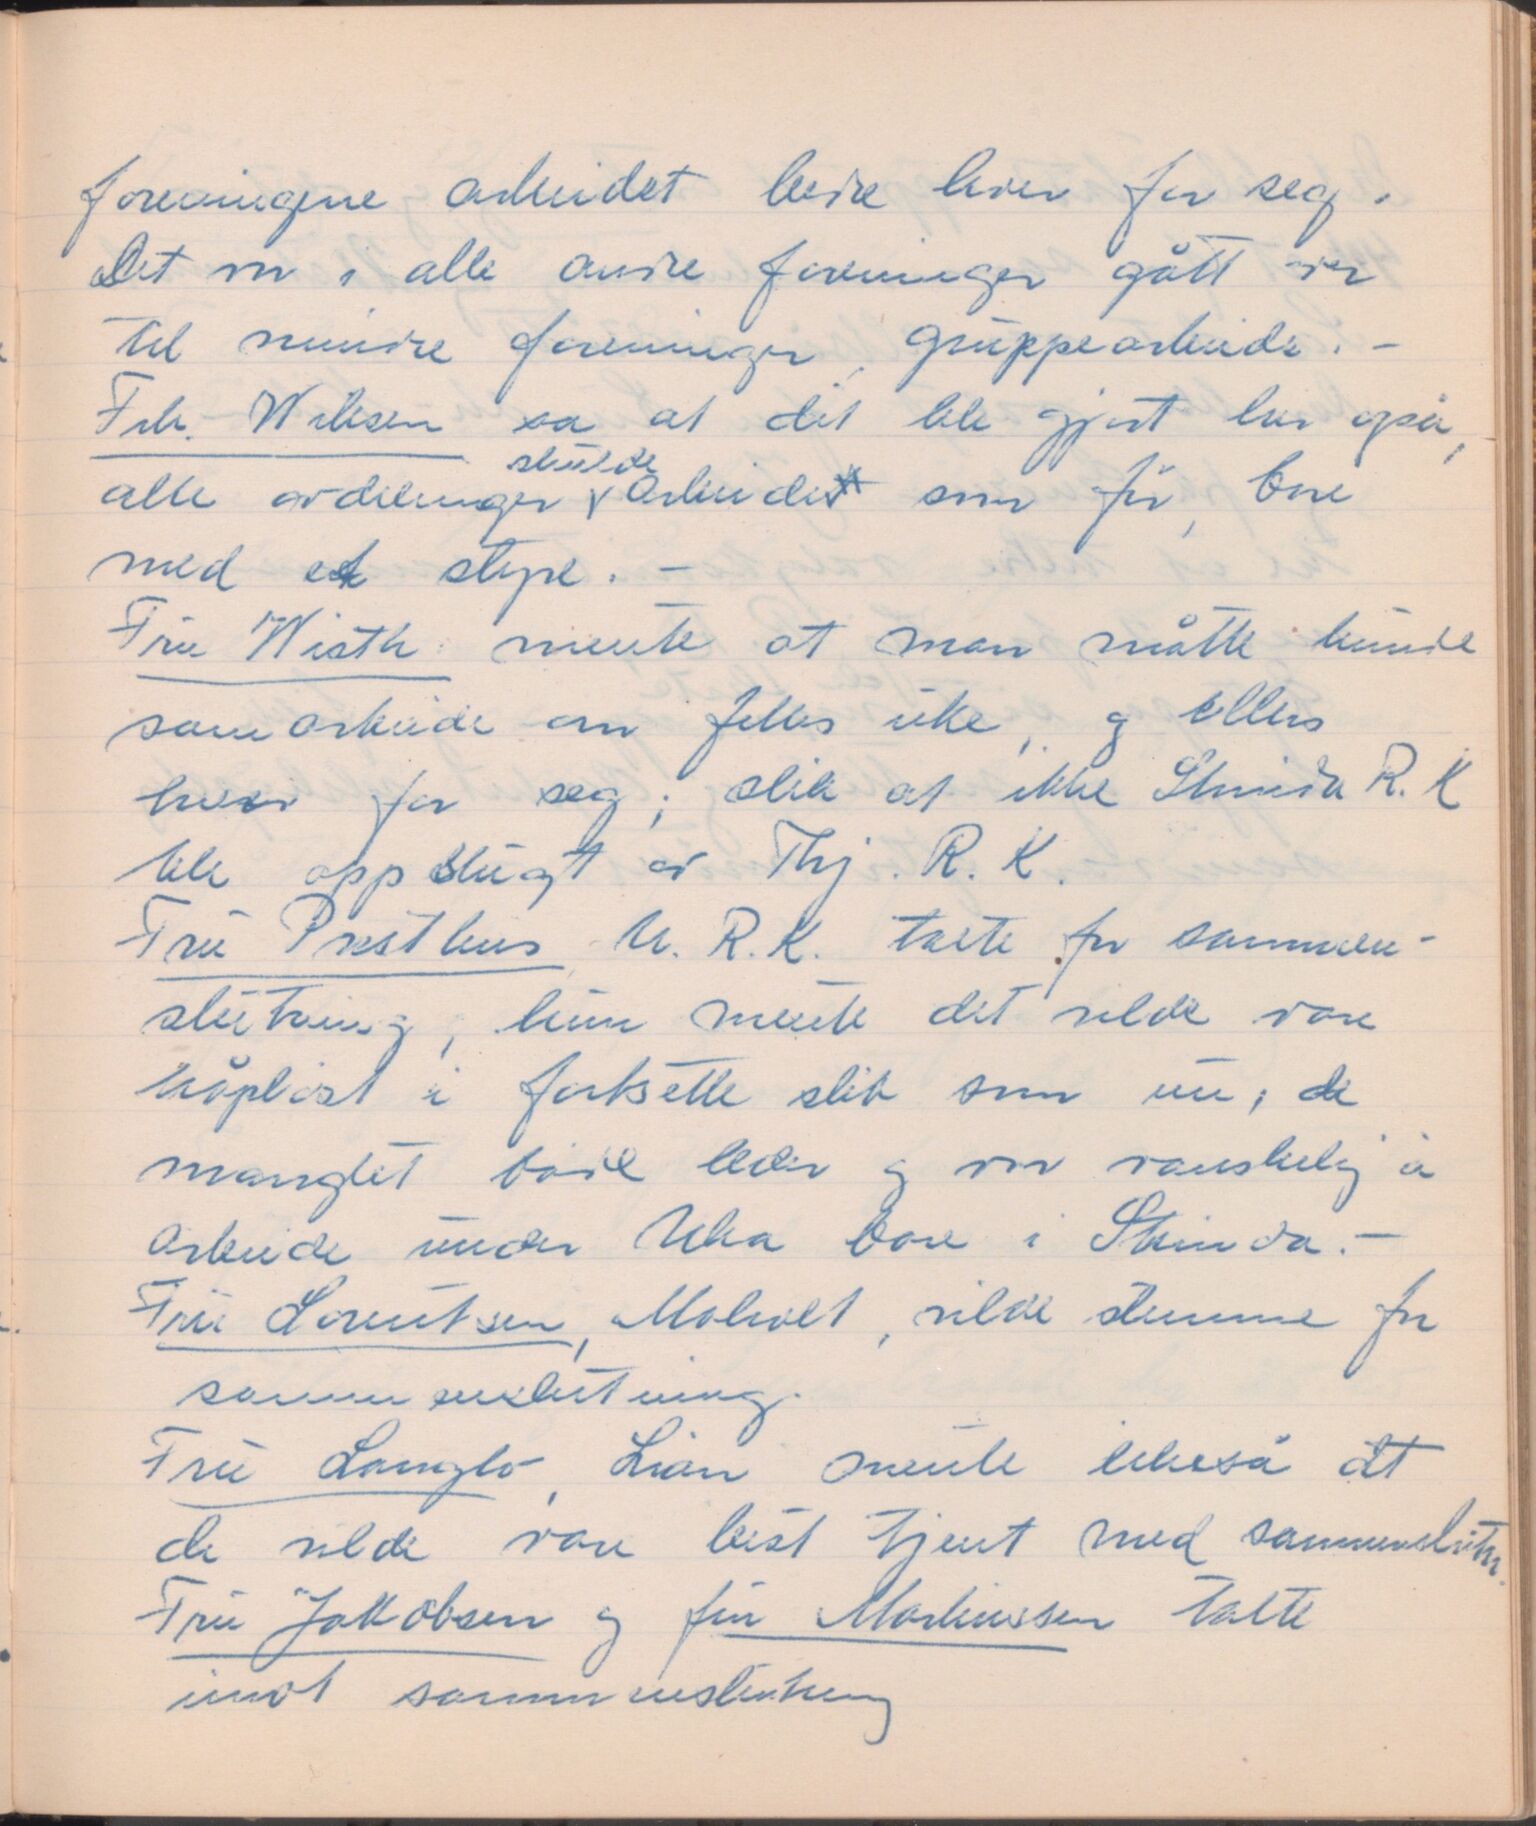 foreningene arbeidet bedre hver for seg.
Det var i alle andre foreninger gått over
til mindre foreninger, gruppearbeide. -
Frk. Wilsen sa at det ble gjort her også,
skulde
alle avdelinger arbeidet som før, bare
med et styre. -
Fru Wisth mente at man måtte kunde
samarbeide om felles uke, og ellers
hver for seg; slik at ikke Strinda R. K
ble oppslugt av Thj. R. K.
Fru Presthus, U. R. K. talte for sammen-
slutning, hun mente det vilde være
håpløst å fortsette slik som nu; de
manglet både leder og var vanskelig å
arbeide under Uka bare i Strinda. -
Fru Lorentsen, Moholt, vilde stemme for
sammenslutning.
Fru Langlo, Lian mente likeså at
de vilde være best tjent med sammenslutn.
Fru Jakobsen og fru Martinussen talte
imot sammenslutning